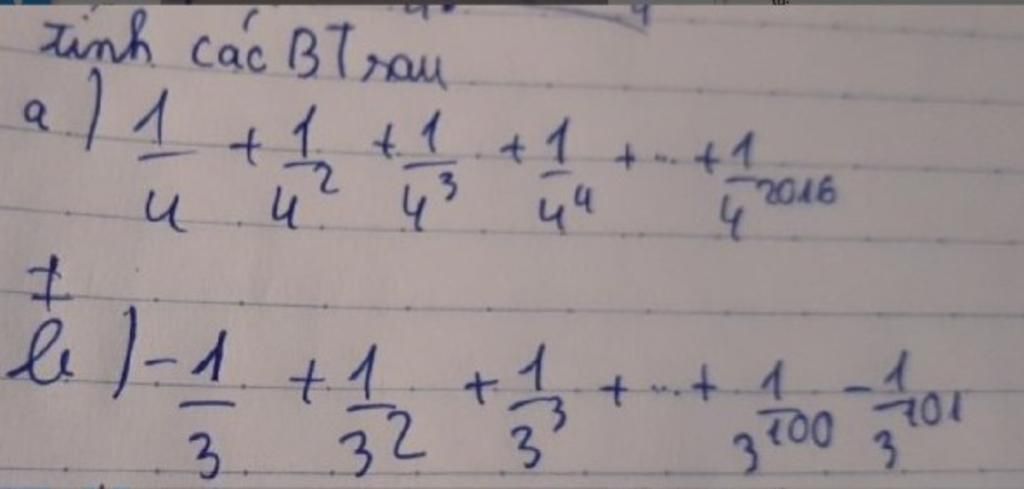 tính các BT sau
a) 1/4 + 1/4² + 1/4³ + 1/4⁴ + ... + 1/4²⁰¹⁶
b) -1/3 + 1/3² + 1/3³ + ... + 1/3¹⁰⁰ - 1/3¹⁰¹